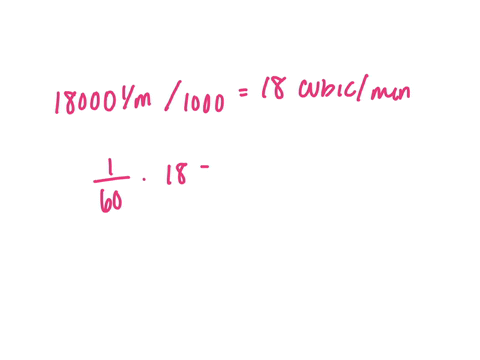 18000 l/m / 1000 = 18 cubic/min
1/60 · 18 =